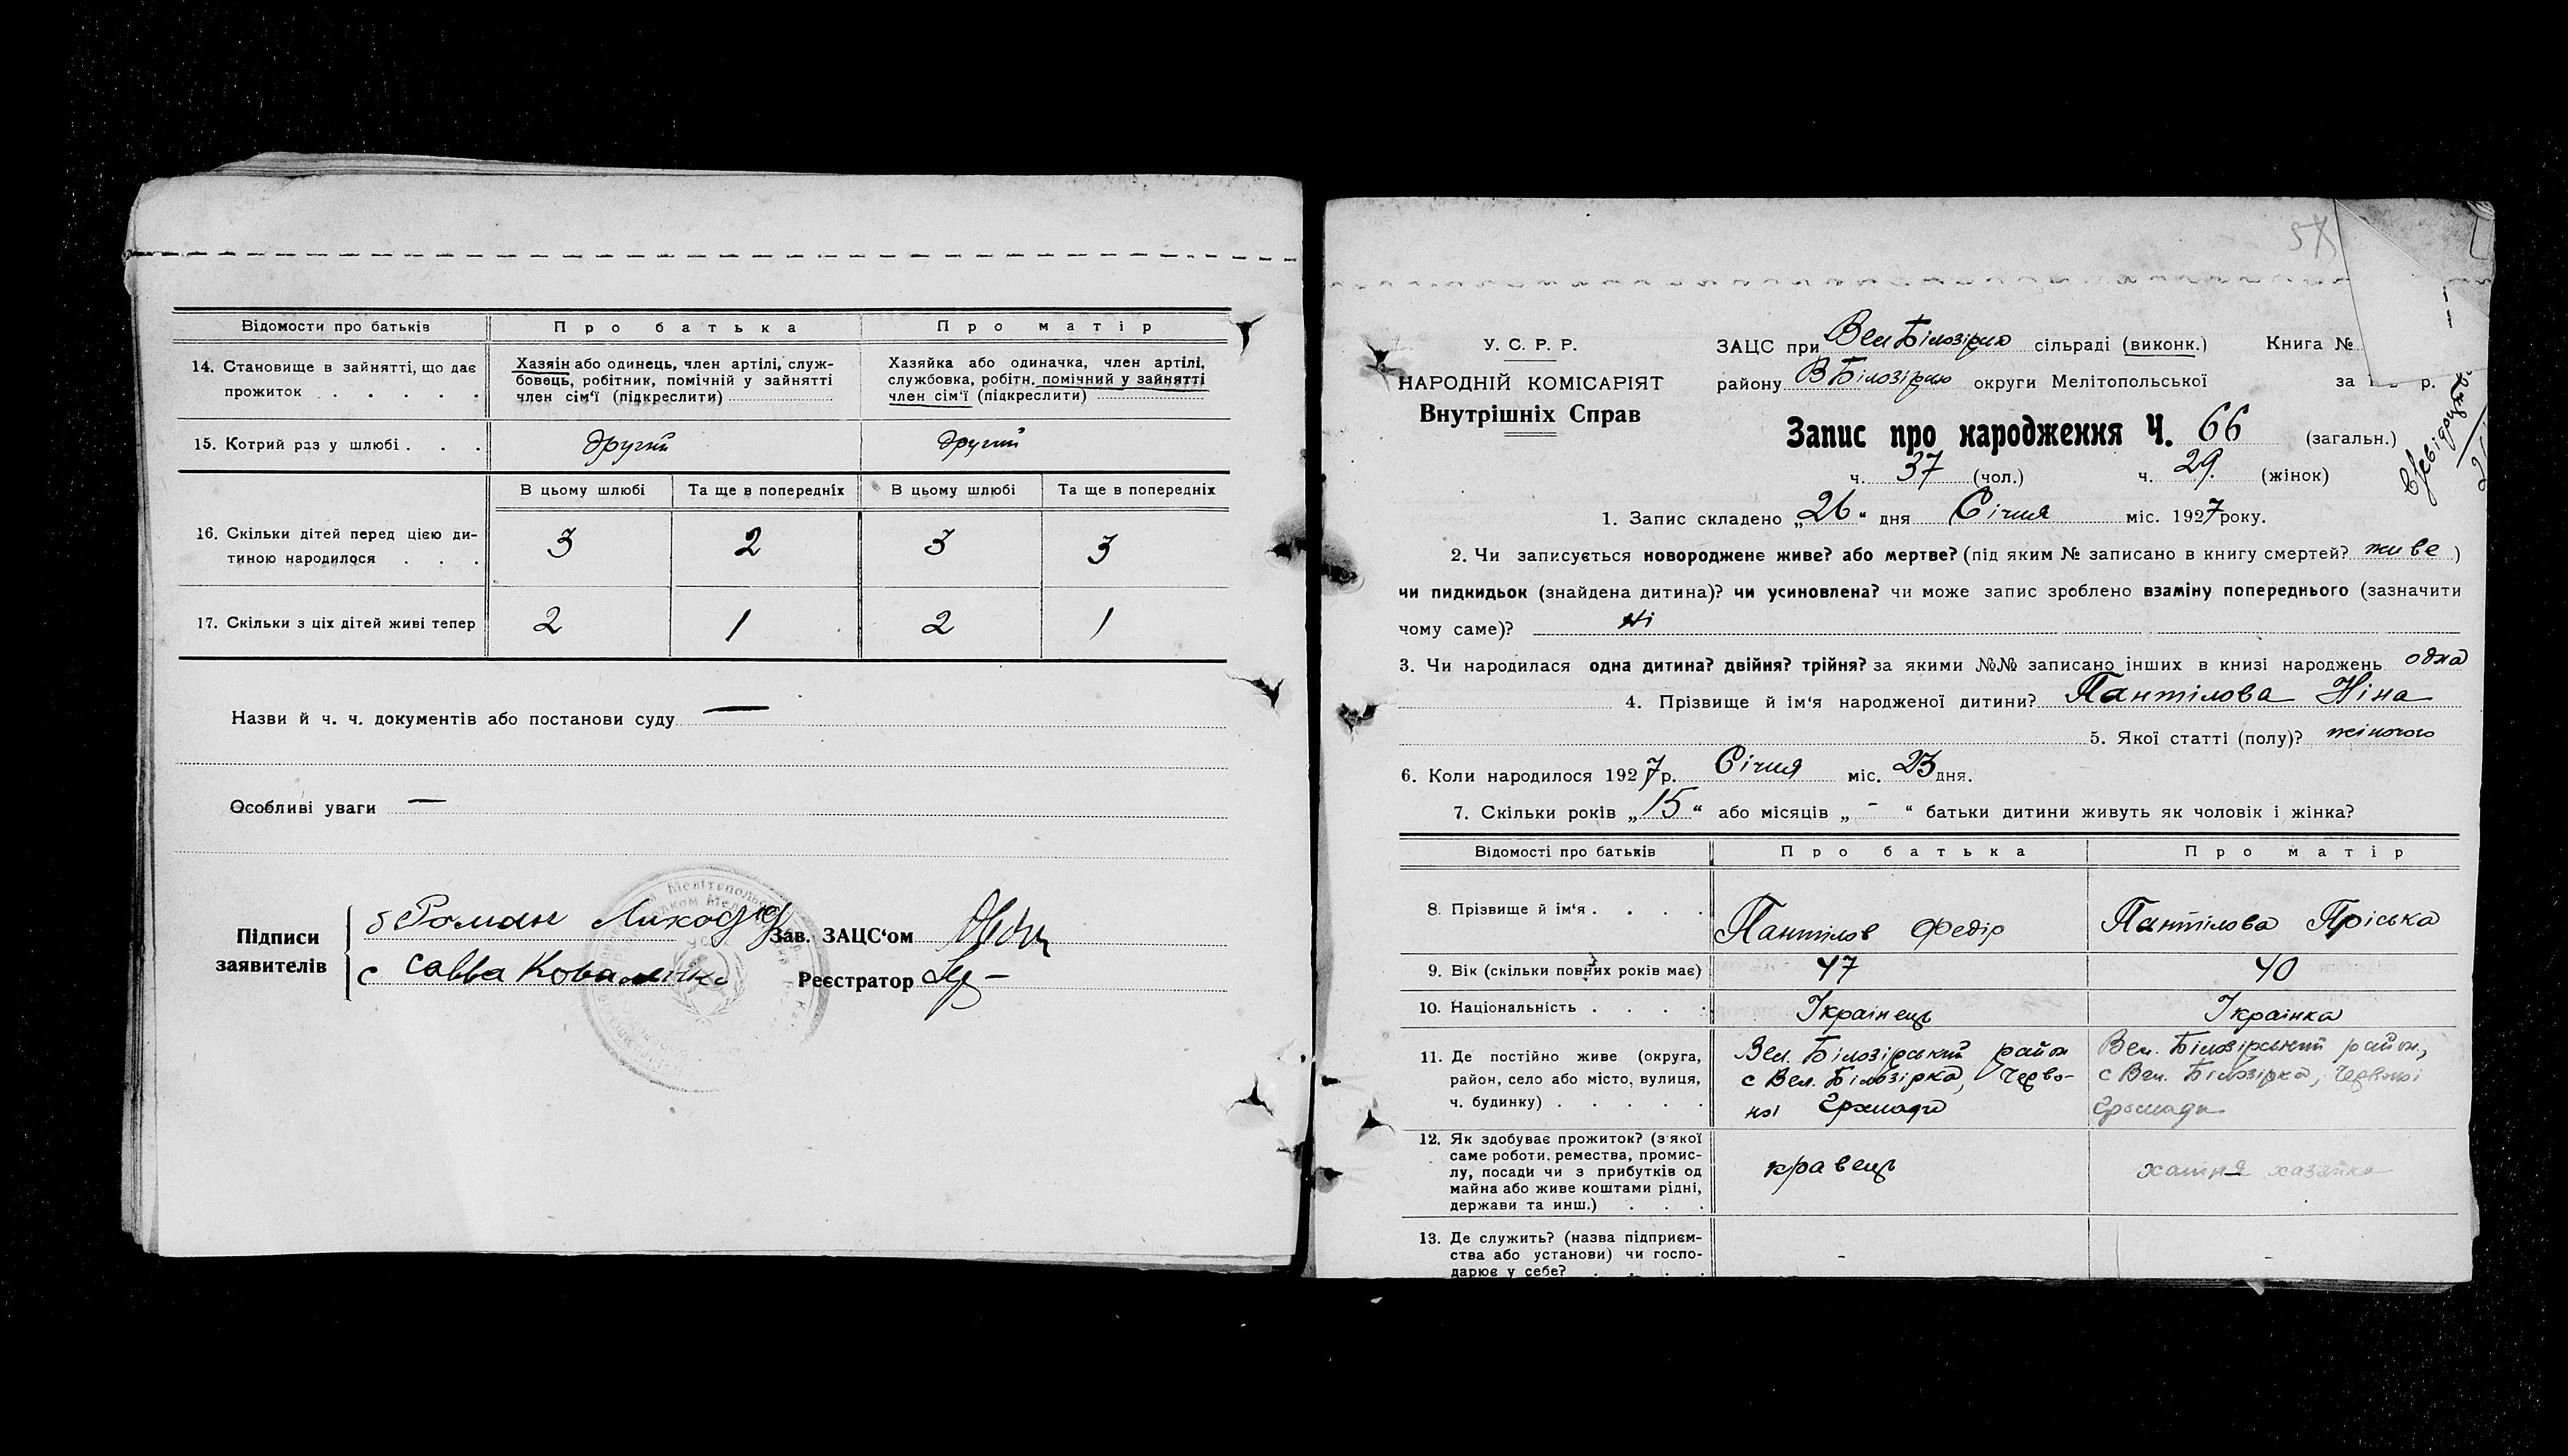 Відомости про батьків Про батька Про матір
14. Становище в зайнятті, що дає прожиток . . . . .
Хазяін або одинець, член артілі, служ-
бовець, робітник, помічній у зайнятті
член сім'ї (підкреслити)
Хазяйка або одиначка, член артілі,
службовка, робітн. помічний у зайнятті
член сім'ї (підкреслити)
15. Котрий раз у шлюбі . . . другий другий
В цьому шлюбі Та ще в попередніх В цьому шлюбі Та ще в попередніх
16. Скільки дітей перед цією ди-
тиною народилося . . . 3 2 3 3
17. Скільки з ціх дітей живі тепер 2 1 2 1
Назви й ч. ч. документів або постанови суду —
Особливі уваги —
Підписи
заявителів
б Роман
с Савва Коваленко
Зав. ЗАЦС'ом
Реєстратор
У. С. Р. Р.
НАРОДНІЙ КОМІСАРІЯТ
Внутрішніх Справ
ЗАЦС при Вел Білозірка сільраді (виконк.) Книга №
району В Білозірка округи Мелітопольської за р.
Запис про народження Ч. 66 (загальн.)
ч. 37 (чол.) ч. 29. (жінок)
1. Запис складено „26" дня Січня міс. 1927 року.
2. Чи записується новороджене живе? або мертве? (під яким № записано в книгу смертей? живе )
чи пидкидьок (знайдена дитина)? чи усиновлена? чи може запис зроблено взаміну попереднього (зазначити
чому саме)? Ні
3. Чи народилася одна дитина? двійня? трійня? за якими №№ записано інших в книзі народжень одна
4. Прізвище й ім'я народженої дитини? Пантілова Ніна
5. Якої статті (полу)? жіночого
6. Коли народилося 1927 р. Січня міс. 23 дня.
7. Скільки років „15" або місяців „-" батьки дитини живуть як чоловік і жінка?
Відомості про батьків Про батька Про матір
8. Прізвище й ім'я . . . . Пантілов Федір Пантілова Пріська
9. Вік (скільки повних років має) 47 40
10. Національність . . . . Україиець Українка
11. Де постійно живе (округа,
район, село або місто, вулиця,
ч. будинку) . . . . .
Вел. Білозірський район
с Вел. Білозірка, Черво-
ної Громади
Вел. Білозірський район,
с Вел. Білозірка, Червоної
Громади
12. Як здобуває прожиток? (з якої
саме роботи, ремества, промис-
лу, посади чи з прибутків од
майна або живе коштами рідні,
держави та инш.) . . .
кравець
хатня хазяйка
13. Де служить? (назва підприєм-
ства або установи) чи госпо-
дарює у себе? . . . . - -